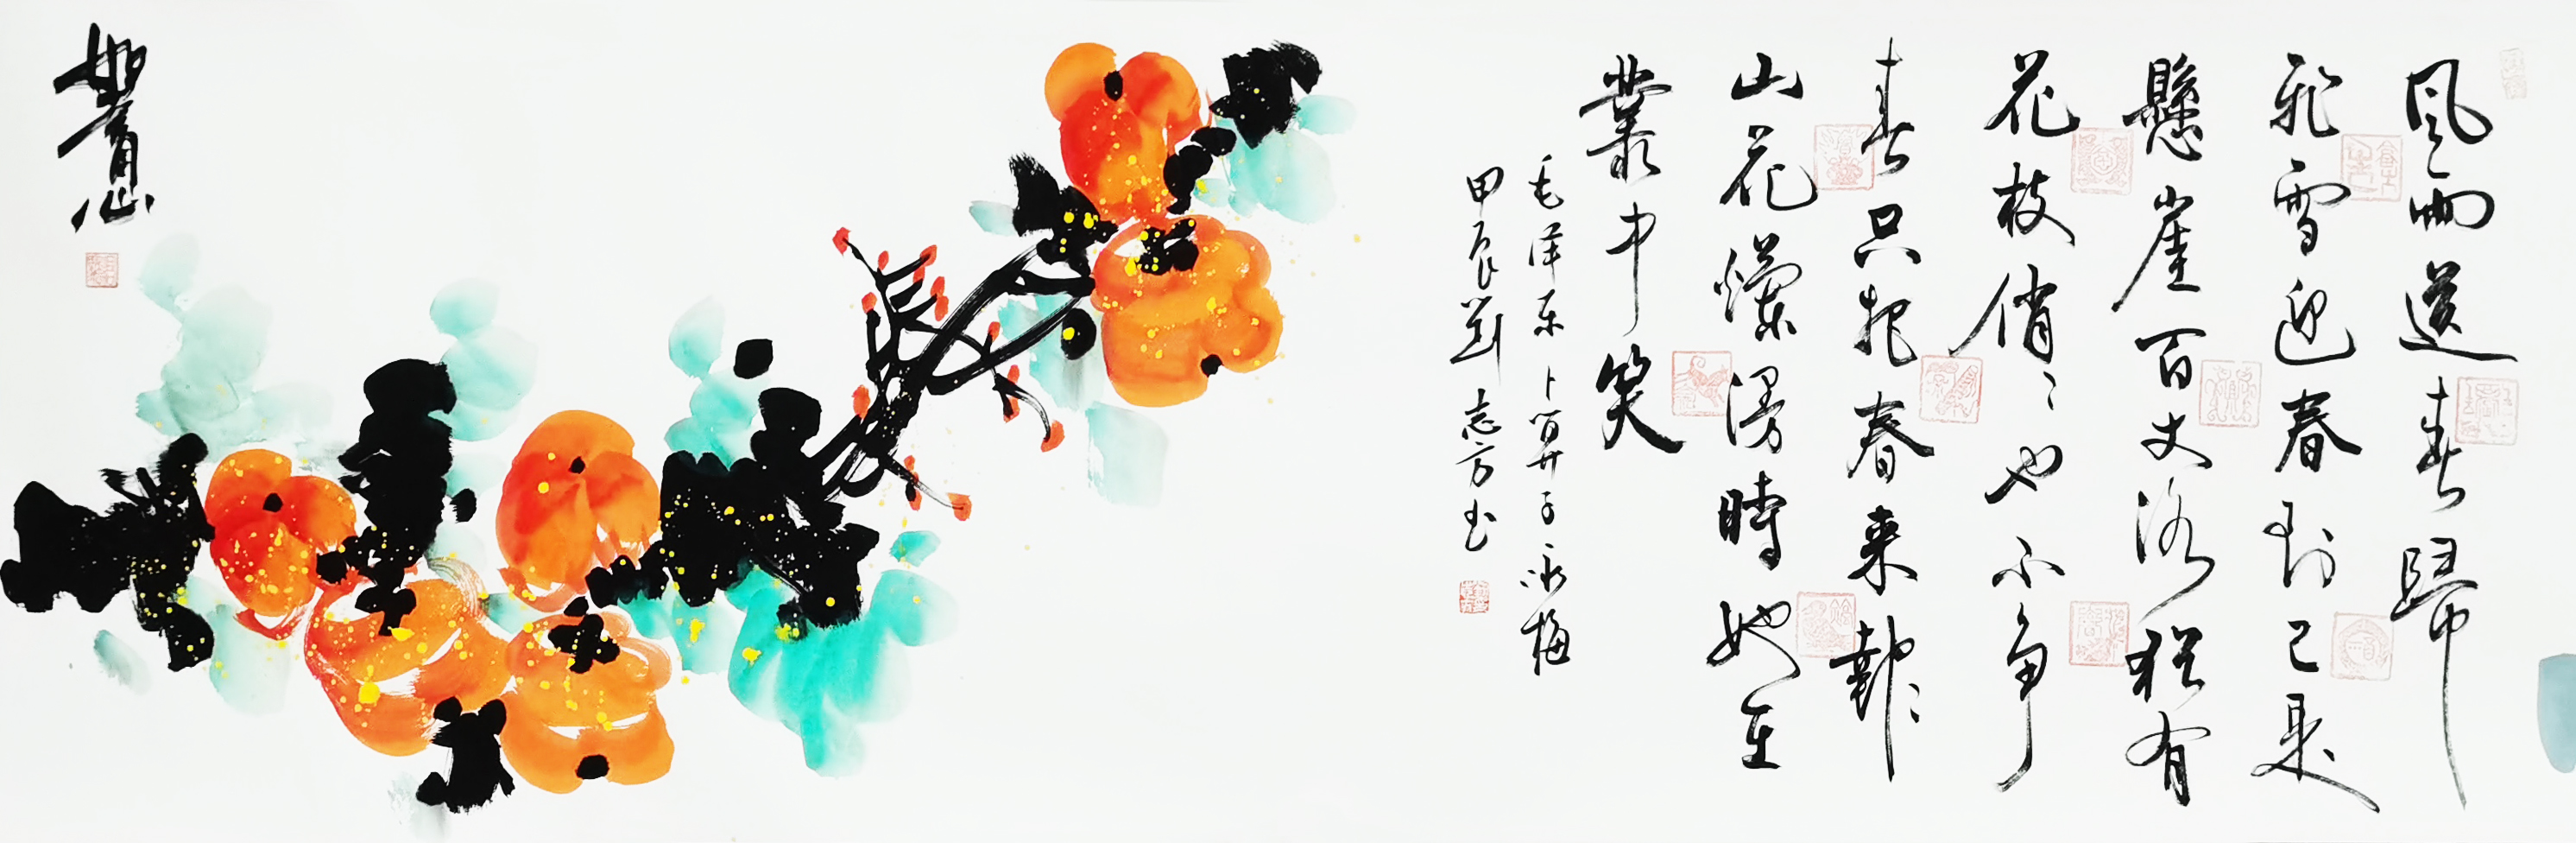 風雨送春歸
飛雪迎春到已是
懸崖百丈冰猶有
花枝俏〻也不争
春只把春来報〻
山花爛漫時她在
叢中笑
毛泽东卜算子咏梅
甲辰劉志方书